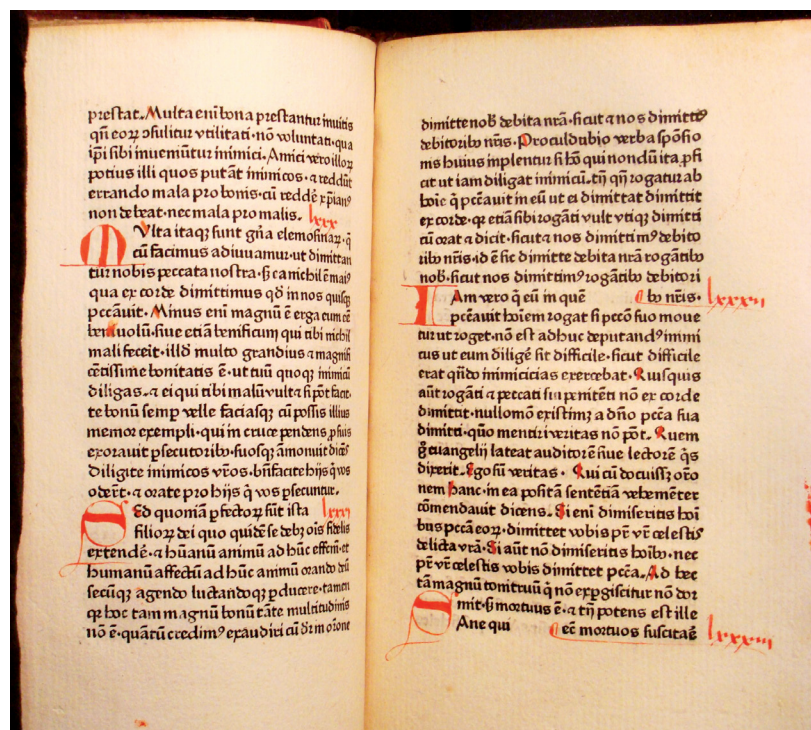 prestat. Multa eni bona prestantur inuitis
qñ eoꝝ ↄsulitur vtilitati· nō voluntati· qua
ip̄i sibi inueniūtur inimici. Amici vero illoꝝ
potius illi quos putāt inimicos· ⁊ reddūt
errando mala pro bonis· cū redde xp̄ianꝰ
non debeat· nec mala pro malis. lxx
Vlta itaqꝫ sunt gña elemosinaꝝ· q̄
cū facimus adiuuamur· ut dimittan
tur nobis peccata nostra· sꝫ ea nichil ē maiꝰ
qua ex corde dimittimus qd̄ in nos quisqꝫ
pccāuit· Minus eni magnū ē erga eum eē
beniuolū· siue etiā benificum qui tibi nichil
mali fecerit· illd̄ multo grandius ⁊ magnifi
cētissime bonitatis ē· ut tuū quoqꝫ inimicū
diligas· ⁊ ei qui tibi malū vult ⁊ si pōt facit·
te bonū semp velle faciasqꝫ cū possis illius
memor exempli· qui in cruce pendens ꝓ suis
exorauit ꝑsecutoribꝰ· suosqꝫ āmonuit dicēs
Diligite inimicos vr̄os· bn̄facite hijs q̄ vos
oder̄t· ⁊ orate pro hijs q̄ vos ꝑsecuntur.
Sed quoniā ꝑfectoꝝ sūt ista lxxi
filioꝝ dei quo quidē se debꝫ ois fidelis
extende· ⁊ hūanū animū ad hūc effcm̄· et
humanū affectū ad hūc animū orando dn̄
secūqꝫ agendo luctandoqꝫ ꝑducere· tamen
qꝛ hoc tam magnū bonū tāte multitudinis
nō ē· quātū credimꝰ exaudiri cū dr̄ in or̄one
dimitte nob̄ debita nrā· sicut ⁊ nos dimittiꝰ
debitoribꝰ nr̄is· Proculdubio verba spōsio
nis huius implentur si hō qui nondū ita ꝓfi
cit ut iam diligat inimicū· tn̄ qn̄ rogatur ab
hoīe q̄ pccāuit in eū ut ei dimittat dimittit
ex corde· qꝛ etiā sibi rogāti vult vtiqꝫ dimitti
cū orat ⁊ dicit· sicut ⁊ nos dimittimꝰ debito
ribꝰ nr̄is· id ē sic dimitte debita nrā rogātibꝰ
nob̄· sicut nos dimittimꝰ rogātibꝰ debitori
Iam vero q̄ eū in quē bꝰ nr̄is·
pccāuit hoīem rogat si pccō suo moue
tur ut roget· nō est adhuc deputandꝰ inimi
cus ut eum diligē sit difficile· sicut difficile
erat qn̄do inimicicias exercebat· Quisquis
aūt rogāti ⁊ peccati sui penitēti nō ex corde
dimittit· nullomō existimꝫ a dn̄o pccā sua
dimitti· qm̄o mentiri veritas nō pōt. Quem
euangelij lateat auditorē siue lectorē q̄s
dixerit· Ego sū veritas· Qui cū docuissꝫ or̄o
nem hanc· in ea positā sentētiā vehemēter
cōmendauit dicens. Si eni dimiseritis hoi
bus pccā eoꝝ· dimittet vobis pr̄ vr̄ celestis
delicta vrā· Si aūt nō dimiseritis hoībꝰ· nec
pr̄ vr̄ celestis vobis dimittet pccā. Ad hec
tā magnū tonitruū q̄ nō expgiscitur nō dor
mit· sꝫ mortuus ē· ⁊ tn̄ potens est ille
Sane qui eē mortuos suscitaē